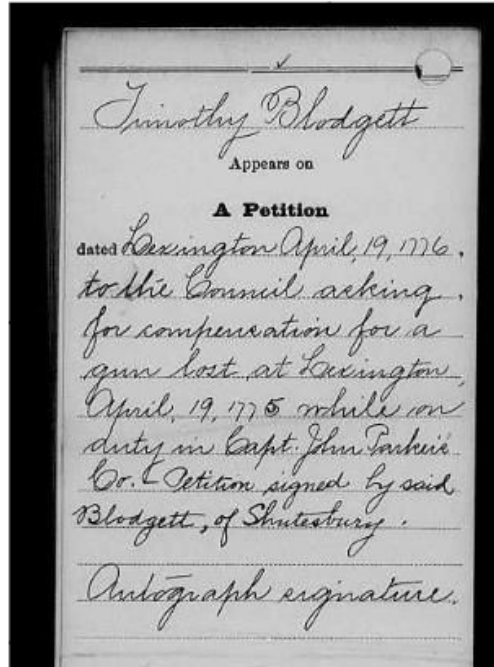 Timothy Blodgett
Appears on
A Petition
dated Lexington April, 19, 1776.
to the Council asking
for compensation for a
gun lost at Lexington
April, 19, 1775 while on
duty in Capt. John Parker's
Co. - Petition signed by said
Blodgett, of Shutesbury.
Autograph signature.